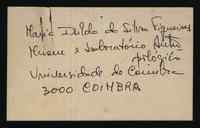 Maria Ilda da Silva Figueiras
Museu e Laboratório Antro
pológico
Universidade de Coimbra
3000 COIMBRA